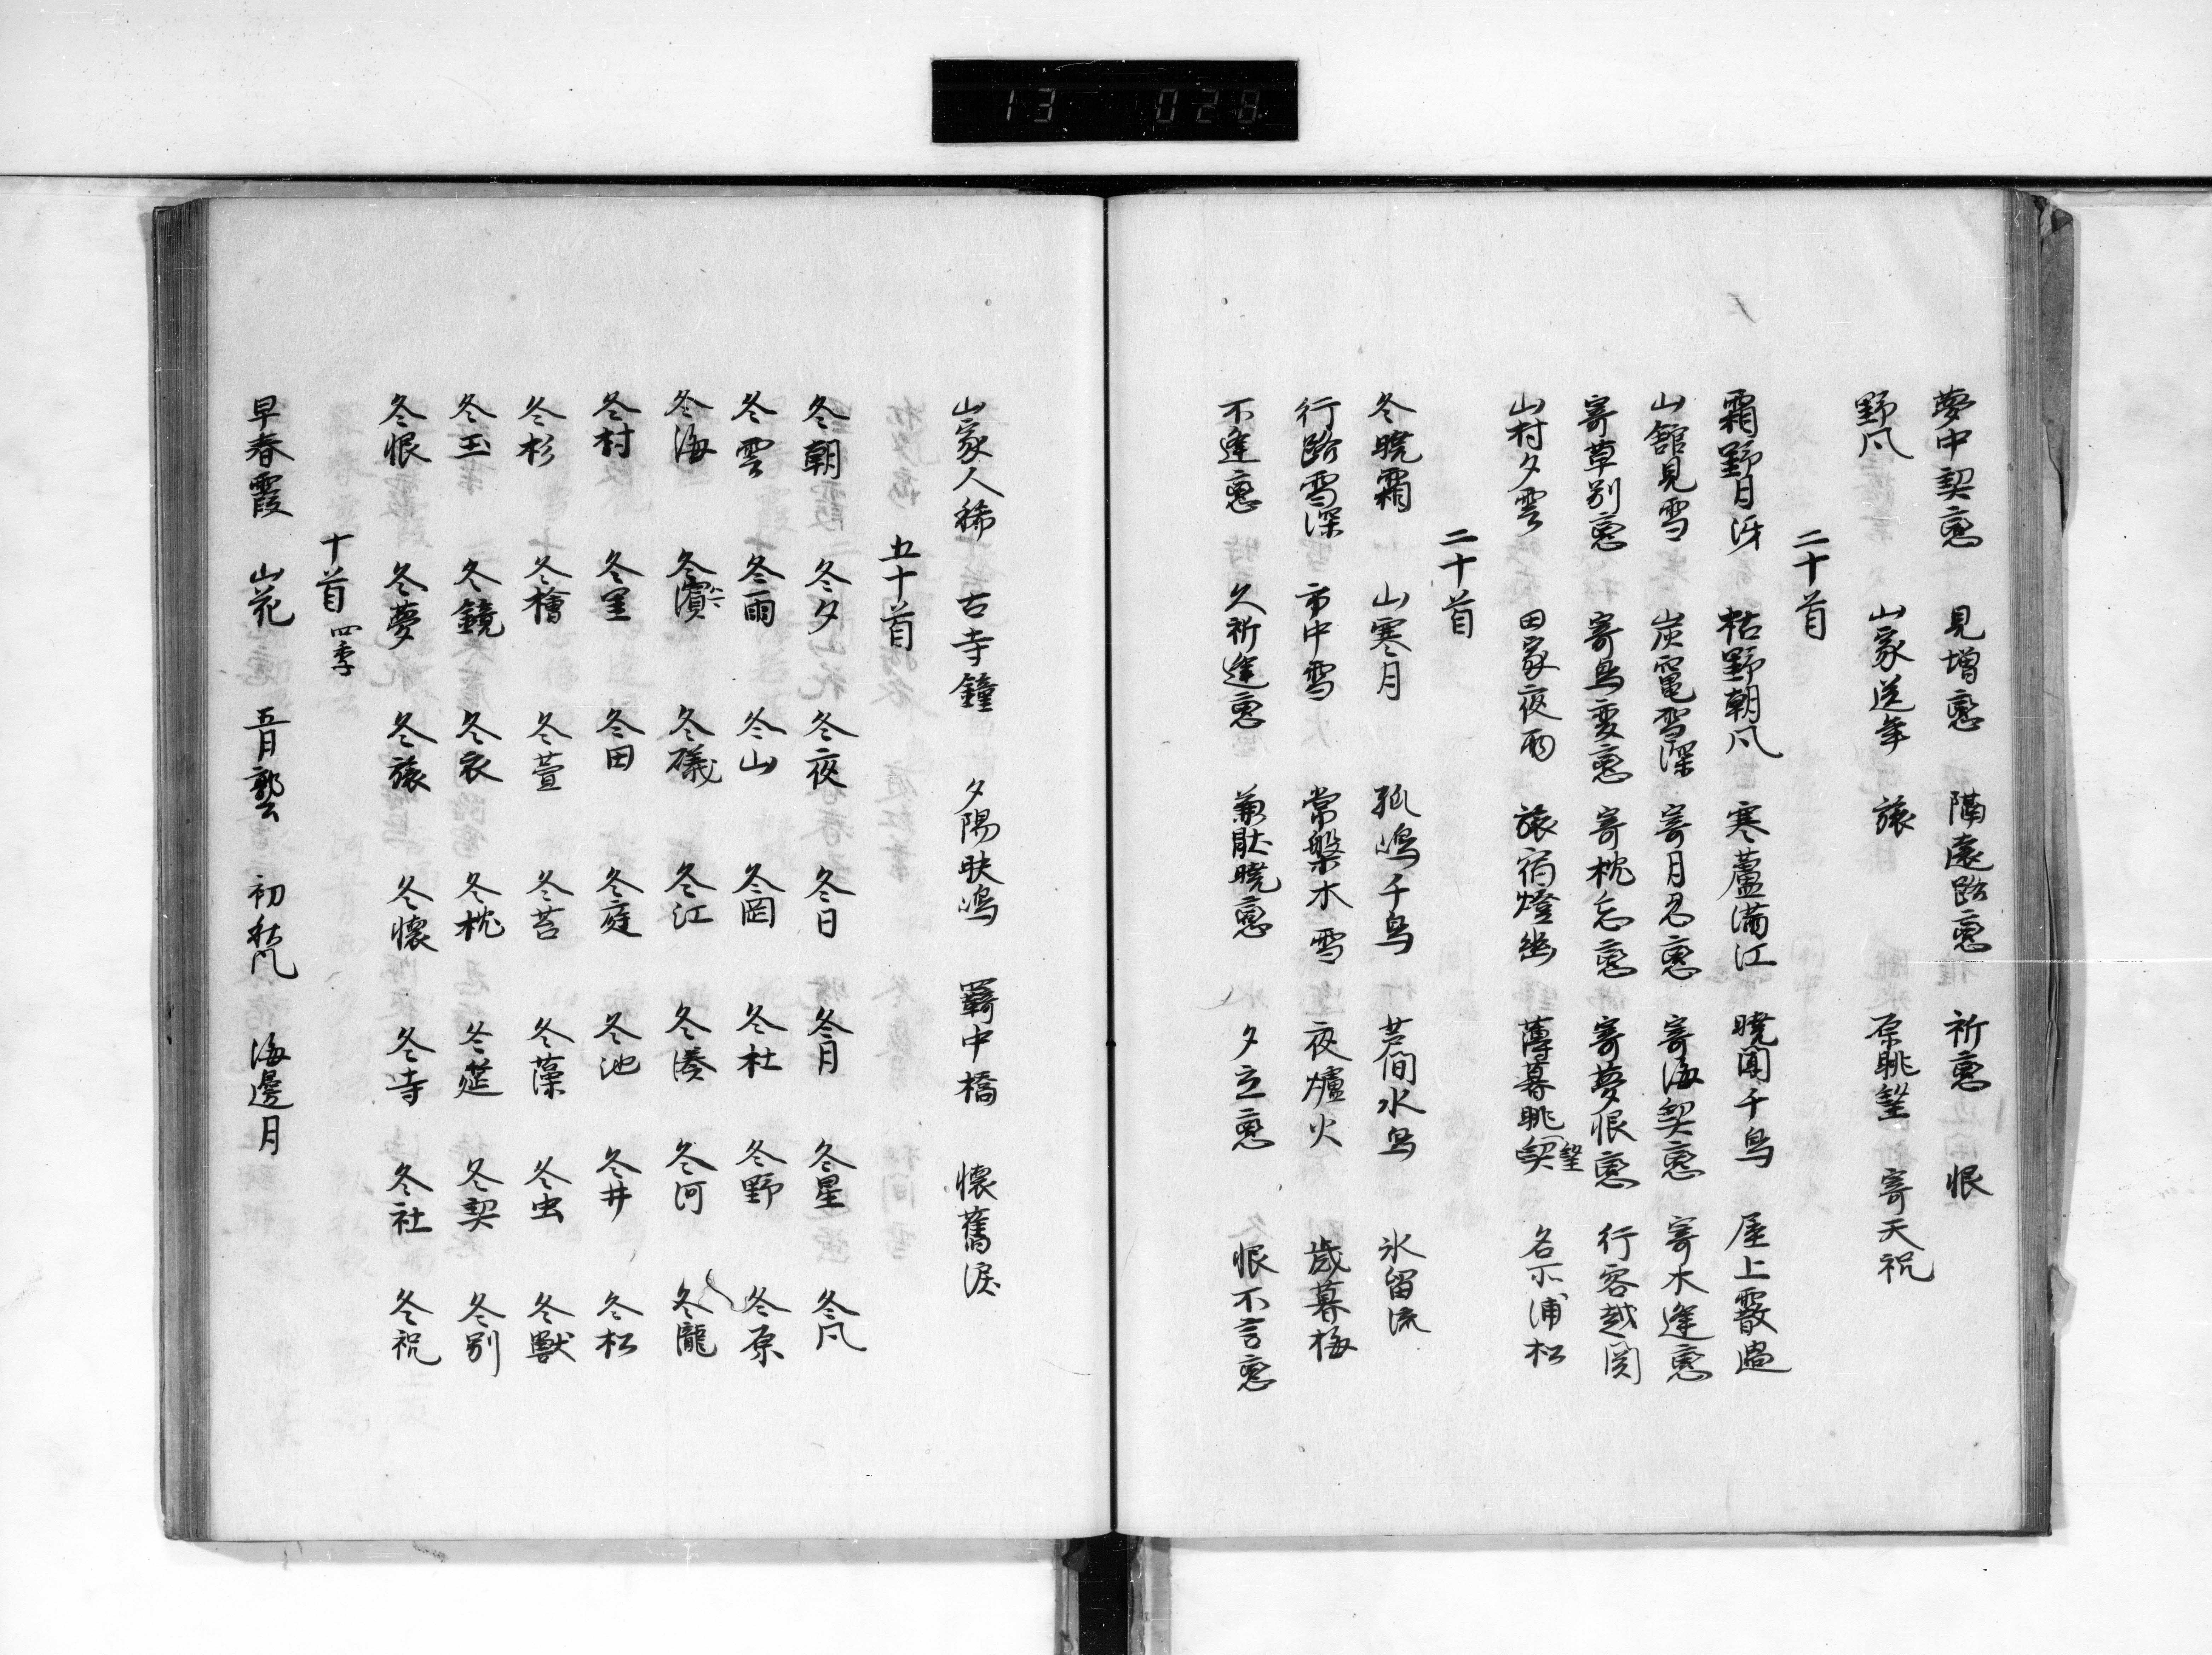 13 028
夢中契恋 見増恋 隔遠路恋 祈恋 恨
野風 山家送年 旅 原眺望 寄天祝
二十首
霜野月冴 枯野朝風 寒蘆満江 暁聞千鳥 屋上霰過
山館見雪 炭竃雪深 寄月忍恋 寄海契恋 寄木逢恋
寄草別恋 寄鳥変恋 寄枕忘恋 寄夢恨恋 行客越関
山村夕雲 田家夜雨 旅宿燈幽 薄暮眺契望 名所浦松
二十首
冬暁霜 山寒月 孤嶋千鳥 芦間水鳥 氷留流
行路雪深 市中雪 常磐木雪 夜爐火 歳暮梅
不逢恋 久祈逢恋 兼厭暁恋 夕立恋 恨不言恋
山家人稀 古寺鐘 夕陽映嶋 羇中橋 懐舊涙
五十首
冬朝 冬夕 冬夜 冬日 冬月 冬星 冬風
冬雲 冬雨 冬山 冬岡 冬杜 冬野 冬原
冬海 冬濱 冬礒 冬江 冬湊 冬河 冬瀧
冬村 冬里 冬田 冬庭 冬池 冬井 冬松
冬杉 冬檜 冬萱 冬苔 冬藻 冬虫 冬獣
冬玉 冬鏡 冬衣 冬枕 冬莚 冬契 冬別
冬恨 冬夢 冬旅 冬懐 冬寺 冬社 冬祝
十首 四季
早春霞 山花 五月郭公 初秋風 海邊月